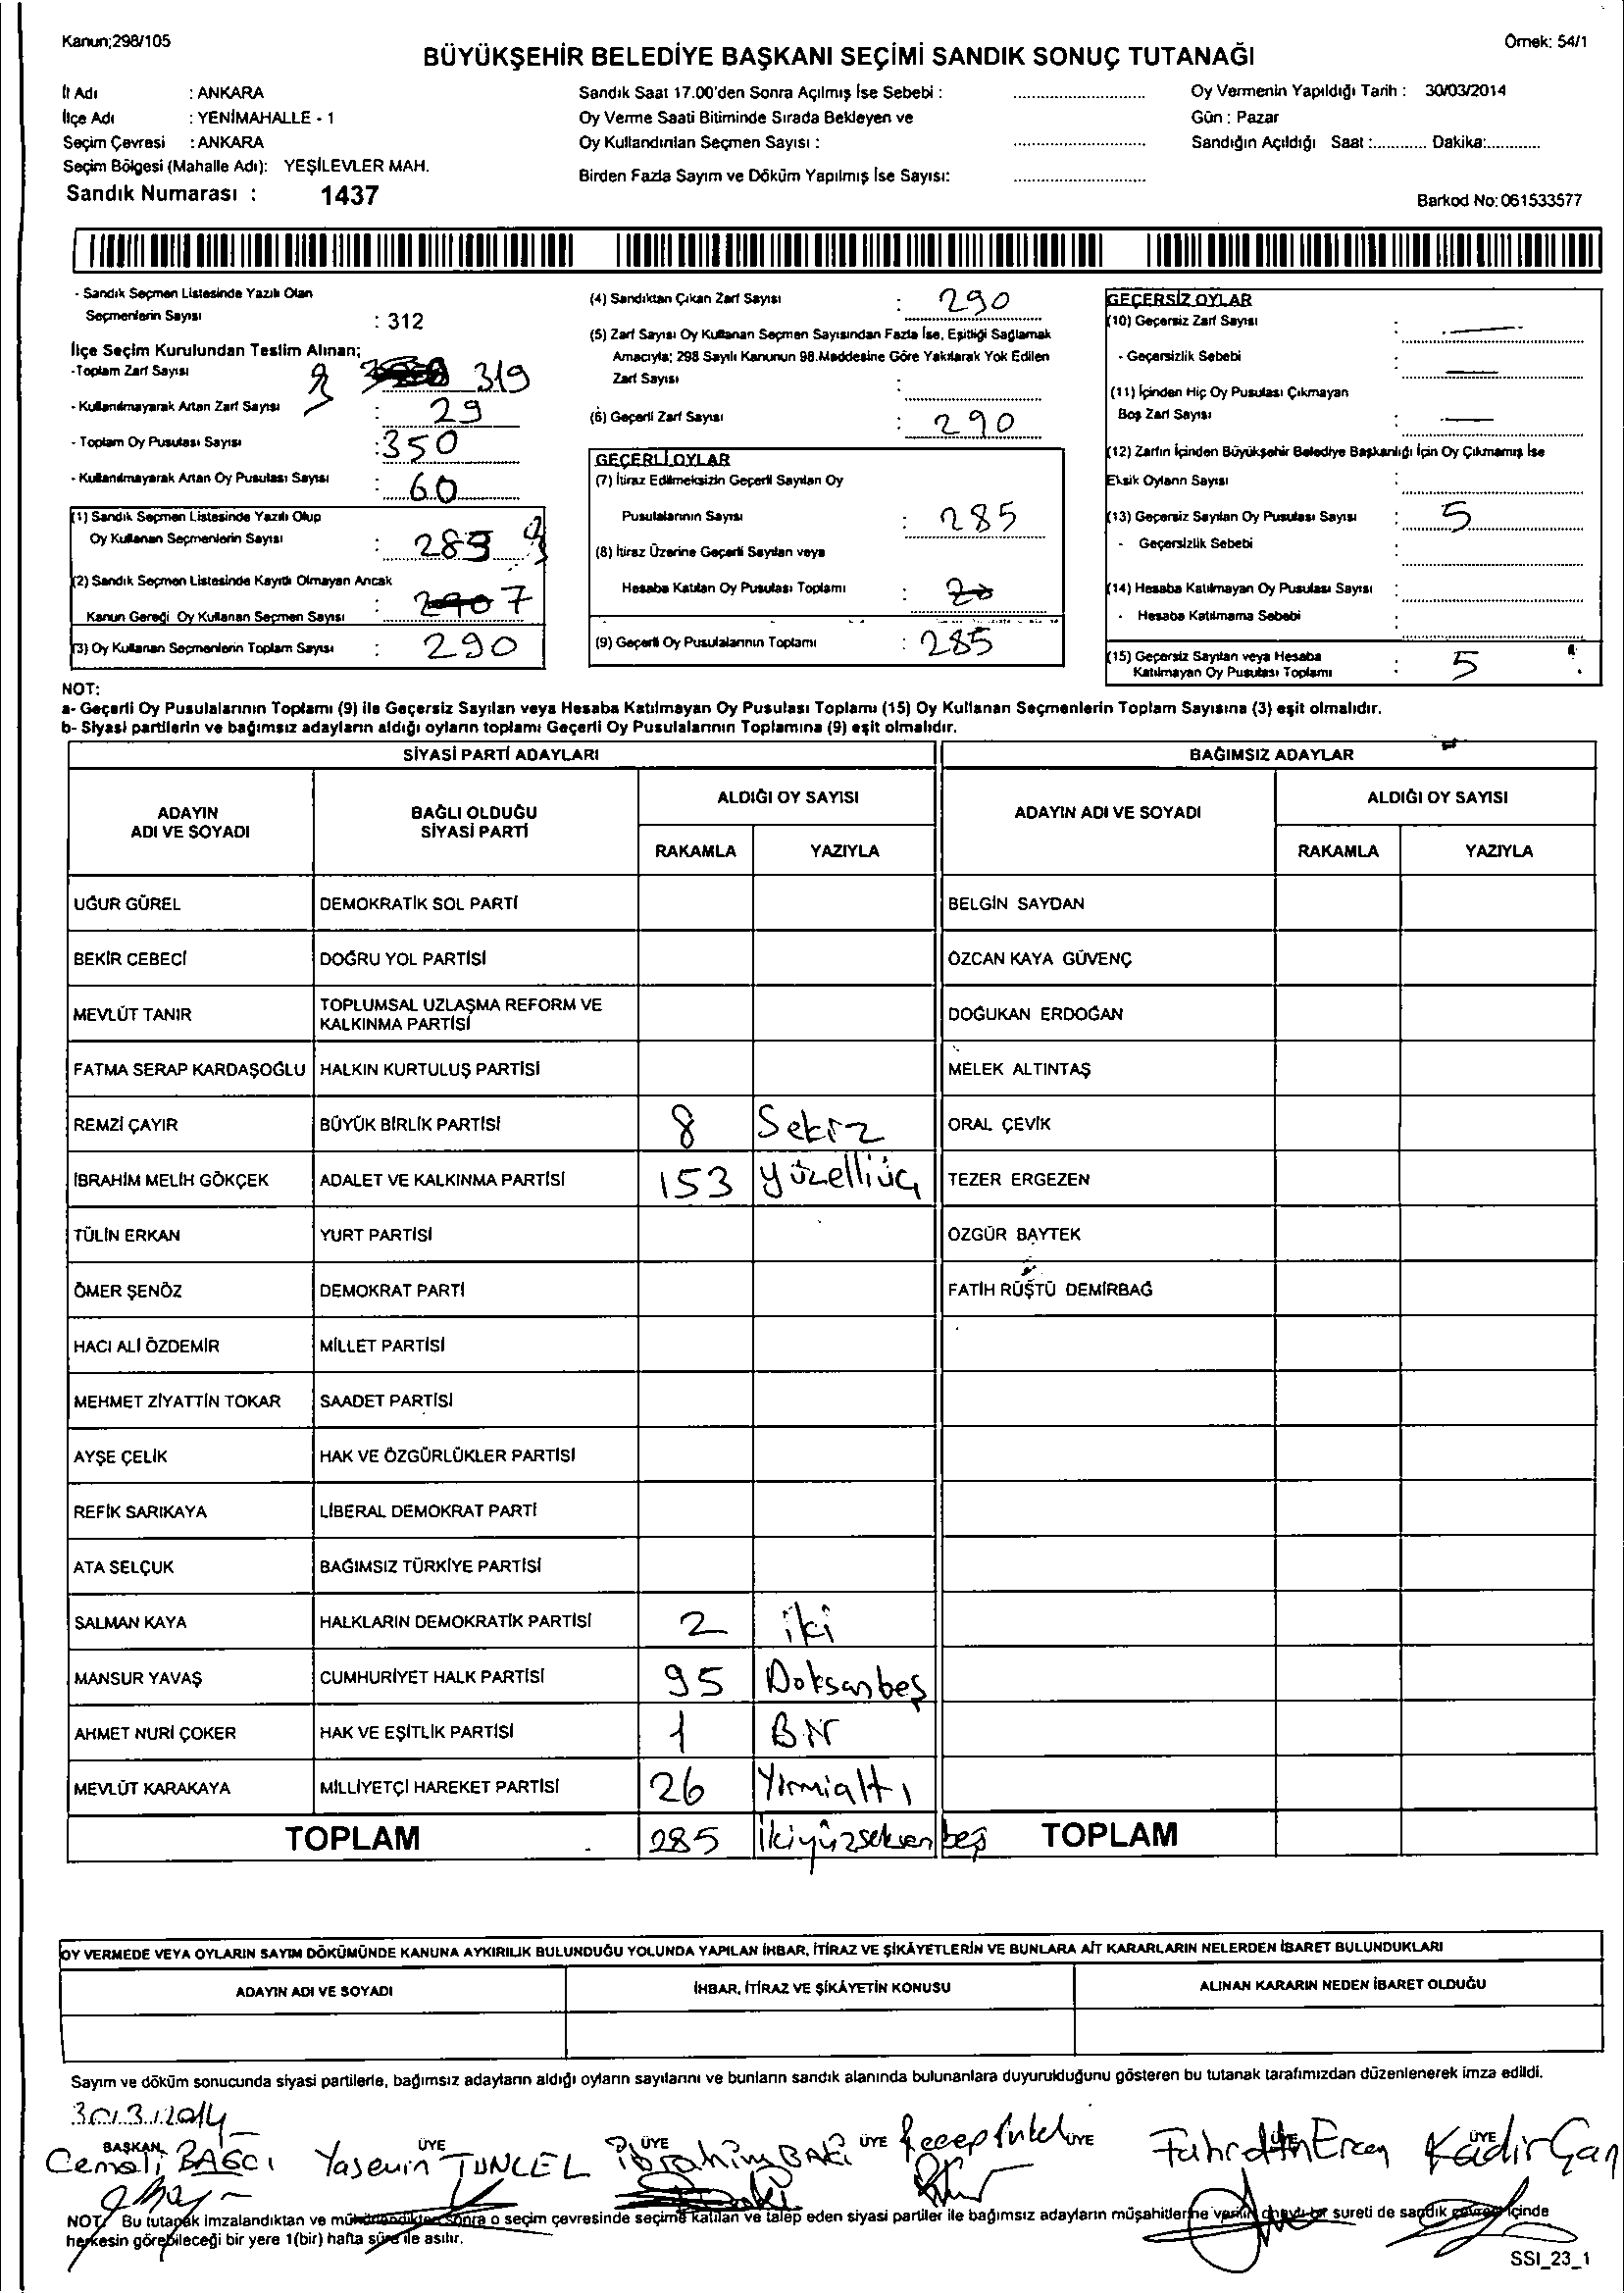 Kanun;298/105
Örnek: 54/1
BÜYÜKŞEHİR BELEDİYE BAŞKANI SEÇİMİ SANDIK SONUÇ TUTANAĞI
İl Adı : ANKARA
İlçe Adı : YENİMAHALLE - 1
Seçim Çevresi : ANKARA
Seçim Bölgesi (Mahalle Adı): YEŞİLEVLER MAH.
Sandık Numarası : 1437
Sandık Saat 17.00'den Sonra Açılmış İse Sebebi :
Oy Verme Saati Bitiminde Sırada Bekleyen ve
Oy Kullandırılan Seçmen Sayısı :
Birden Fazla Sayım ve Döküm Yapılmış İse Sayısı:
Oy Vermenin Yapıldığı Tarih : 30/03/2014
Gün : Pazar
Sandığın Açıldığı Saat :............ Dakika:............
Barkod No: 061533577
- Sandık Seçmen Listesinde Yazılı Olan
Seçmenlerin Sayısı : 312
İlçe Seçim Kurulundan Teslim Alınan;
-Toplam Zarf Sayısı 319
- Kullanılmayarak Artan Zarf Sayısı : 29
- Toplam Oy Pusulası Sayısı : 350
- Kullanılmayarak Artan Oy Pusulası Sayısı : 60
(1) Sandık Seçmen Listesinde Yazılı Olup
Oy Kullanan Seçmenlerin Sayısı : 283
(2) Sandık Seçmen Listesinde Kayıtlı Olmayan Ancak
Kanun Gereği Oy Kullanan Seçmen Sayısı : 7
(3) Oy Kullanan Seçmenlerin Toplam Sayısı : 290
(4) Sandıktan Çıkan Zarf Sayısı : 290
(5) Zarf Sayısı Oy Kullanan Seçmen Sayısından Fazla İse, Eşitliği Sağlamak
Amacıyla; 298 Sayılı Kanunun 98.Maddesine Göre Yakılarak Yok Edilen
Zarf Sayısı :
(6) Geçerli Zarf Sayısı : 290
GEÇERLİ OYLAR
(7) İtiraz Edilmeksizin Geçerli Sayılan Oy
Pusulalarının Sayısı : 285
(8) İtiraz Üzerine Geçerli Sayılan veya
Hesaba Katılan Oy Pusulası Toplamı :
(9) Geçerli Oy Pusulalarının Toplamı : 285
GEÇERSİZ OYLAR
(10) Geçersiz Zarf Sayısı : —
- Geçersizlik Sebebi : —
(11) İçinden Hiç Oy Pusulası Çıkmayan
Boş Zarf Sayısı : —
(12) Zarfın İçinden Büyükşehir Belediye Başkanlığı İçin Oy Çıkmamış İse
Eksik Oyların Sayısı :
(13) Geçersiz Sayılan Oy Pusulası Sayısı : 5
- Geçersizlik Sebebi :
(14) Hesaba Katılmayan Oy Pusulası Sayısı :
- Hesaba Katılmama Sebebi :
(15) Geçersiz Sayılan veya Hesaba
Katılmayan Oy Pusulası Toplamı : 5
NOT:
a- Geçerli Oy Pusulalarının Toplamı (9) ile Geçersiz Sayılan veya Hesaba Katılmayan Oy Pusulası Toplamı (15) Oy Kullanan Seçmenlerin Toplam Sayısına (3) eşit olmalıdır.
b- Siyasi partilerin ve bağımsız adayların aldığı oyların toplamı Geçerli Oy Pusulalarının Toplamına (9) eşit olmalıdır.
SİYASİ PARTİ ADAYLARI BAĞIMSIZ ADAYLAR
ADAYIN ADI VE SOYADI BAĞLI OLDUĞU SİYASİ PARTİ ALDIĞI OY SAYISI ADAYIN ADI VE SOYADI ALDIĞI OY SAYISI
RAKAMLA YAZIYLA RAKAMLA YAZIYLA
UĞUR GÜREL DEMOKRATİK SOL PARTİ BELGİN SAYDAN
BEKİR CEBECİ DOĞRU YOL PARTİSİ ÖZCAN KAYA GÜVENÇ
MEVLÜT TANIR TOPLUMSAL UZLAŞMA REFORM VE KALKINMA PARTİSİ DOĞUKAN ERDOĞAN
FATMA SERAP KARDAŞOĞLU HALKIN KURTULUŞ PARTİSİ MELEK ALTINTAŞ
REMZİ ÇAYIR BÜYÜK BİRLİK PARTİSİ 8 Sekiz ORAL ÇEVİK
İBRAHİM MELİH GÖKÇEK ADALET VE KALKINMA PARTİSİ 153 yüzelliüç TEZER ERGEZEN
TÜLİN ERKAN YURT PARTİSİ ÖZGÜR BAYTEK
ÖMER ŞENÖZ DEMOKRAT PARTİ FATİH RÜŞTÜ DEMİRBAĞ
HACI ALİ ÖZDEMİR MİLLET PARTİSİ
MEHMET ZİYATTİN TOKAR SAADET PARTİSİ
AYŞE ÇELİK HAK VE ÖZGÜRLÜKLER PARTİSİ
REFİK SARIKAYA LİBERAL DEMOKRAT PARTİ
ATA SELÇUK BAĞIMSIZ TÜRKİYE PARTİSİ
SALMAN KAYA HALKLARIN DEMOKRATİK PARTİSİ 2 iki
MANSUR YAVAŞ CUMHURİYET HALK PARTİSİ 95 Doksanbeş
AHMET NURİ ÇOKER HAK VE EŞİTLİK PARTİSİ 1 Bir
MEVLÜT KARAKAYA MİLLİYETÇİ HAREKET PARTİSİ 26 Yirmialtı
TOPLAM 285 İkiyüzseksenbeş TOPLAM
OY VERMEDE VEYA OYLARIN SAYIM DÖKÜMÜNDE KANUNA AYKIRILIK BULUNDUĞU YOLUNDA YAPILAN İHBAR, İTİRAZ VE ŞİKÂYETLERİN VE BUNLARA AİT KARARLARIN NELERDEN İBARET BULUNDUKLARI
ADAYIN ADI VE SOYADI İHBAR, İTİRAZ VE ŞİKÂYETİN KONUSU ALINAN KARARIN NEDEN İBARET OLDUĞU
Sayım ve döküm sonucunda siyasi partilerle, bağımsız adayların aldığı oyların sayılarını ve bunların sandık alanında bulunanlara duyurulduğunu gösteren bu tutanak tarafımızdan düzenlenerek imza edildi.
30.3.2014
BAŞKAN ÜYE ÜYE ÜYE ÜYE ÜYE ÜYE
Cemali BAĞCI Yasemin TUNCEL İbrahim BAKİ Recep Fahrettin Ercan Kadir Can
NOT: Bu tutanak imzalandıktan ve mühürlendikten sonra o seçim çevresinde seçime katılan ve talep eden siyasi partiler ile bağımsız adayların müşahitlerine verilir, onaylı bir sureti de sandık çevresi içinde
herkesin görebileceği bir yere 1(bir) hafta süre ile asılır.
SSI_23_1